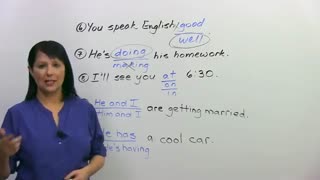 ⑥ You speak English good
well
⑦ He's doing his homework.
making
⑧ I'll see you at 6:30.
on
in
He and I are getting married.
Him and I
He has a cool car.
He's having